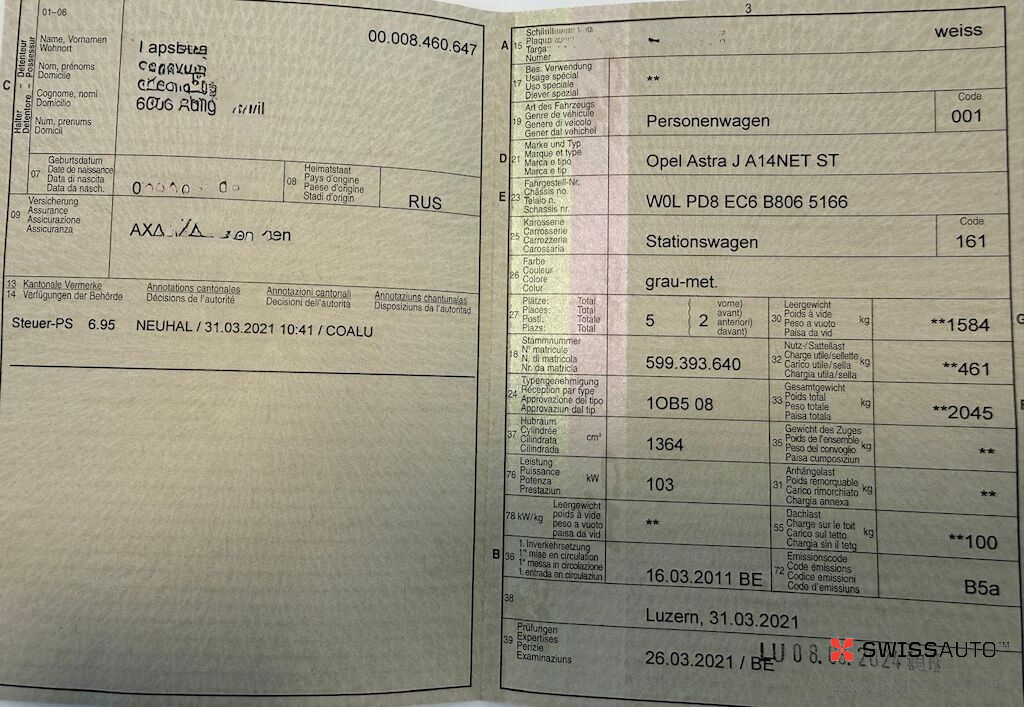 01–06
Détenteur
Possessur
Halter
Detentore
C
Name, Vornamen
Wohnort
Nom, prénoms
Domicile
Cognome, nomi
Domicilio
Num, prenums
Domicil
00.008.460.647
07
Geburtsdatum
Date de naissance
Data di nascita
Data da nasch.
08
Heimatstaat
Pays d'origine
Paese d'origine
Stadi d'origin
RUS
09
Versicherung
Assurance
Assicurazione
Assicuranza
AXA
13 Kantonale Vermerke
14 Verfügungen der Behörde
Annotations cantonales
Décisions de l'autorité
Annotazioni cantonali
Decisioni dell'autorità
Annotaziuns chantunalas
Disposiziuns da l'autoritad
Steuer-PS 6.95 NEUHAL / 31.03.2021 10:41 / COALU
3
A 15
Targa
Numer
weiss
17
Bes. Verwendung
Usage spécial
Uso speciale
Diever spezial
**
19
Art des Fahrzeugs
Genre de véhicule
Genere di veicolo
Gener dal vehichel
Personenwagen
Code
001
D 21
Marke und Typ
Marque et type
Marca e tipo
Marca e tip
Opel Astra J A14NET ST
E 23
Fahrgestell-Nr.
Châssis no
Telaio n.
Schassis nr.
W0L PD8 EC6 B806 5166
25
Karosserie
Carrosserie
Carrozzeria
Carossaria
Stationswagen
Code
161
26
Farbe
Couleur
Colore
Colur
grau-met.
27
Plätze: Total
Places: Total
Posti: Totale
Plazs: Total
5
2
vorne)
avant)
anteriori)
davant)
30
Leergewicht
Poids à vide
Peso a vuoto
Paisa da vid
kg
**1584
G
18
Stammnummer
N° matricule
N. di matricola
Nr. da matricla
599.393.640
32
Nutz-/Sattellast
Charge utile/sellette
Carico utile/sella
Chargia utila/sella
kg
**461
24
Typengenehmigung
Réception par type
Approvazione del tipo
Approvaziun dal tip
1OB5 08
33
Gesamtgewicht
Poids total
Peso totale
Paisa totala
kg
**2045
37
Hubraum
Cylindrée
Cilindrata
Cilindrada
cm³
1364
35
Gewicht des Zuges
Poids de l'ensemble
Peso del convoglio
Paisa cumposiziun
kg
**
76
Leistung
Puissance
Potenza
Prestaziun
kW
103
31
Anhängelast
Poids remorquable
Carico rimorchiato
Chargia annexa
kg
**
78 kW/kg
Leergewicht
poids à vide
peso a vuoto
paisa da vid
**
55
Dachlast
Charge sur le toit
Carico sul tetto
Chargia sin il tetg
kg
**100
B 36
1. Inverkehrsetzung
1re mise en circulation
1a messa in circolazione
1. entrada en circulaziun
16.03.2011 BE
72
Emissionscode
Code émissions
Codice emissioni
Code d'emissiuns
B5a
38
Luzern, 31.03.2021
39
Prüfungen
Expertises
Perizie
Examinaziuns
26.03.2021 / BE
LU 0 8.
2024
SWISSAUTO™